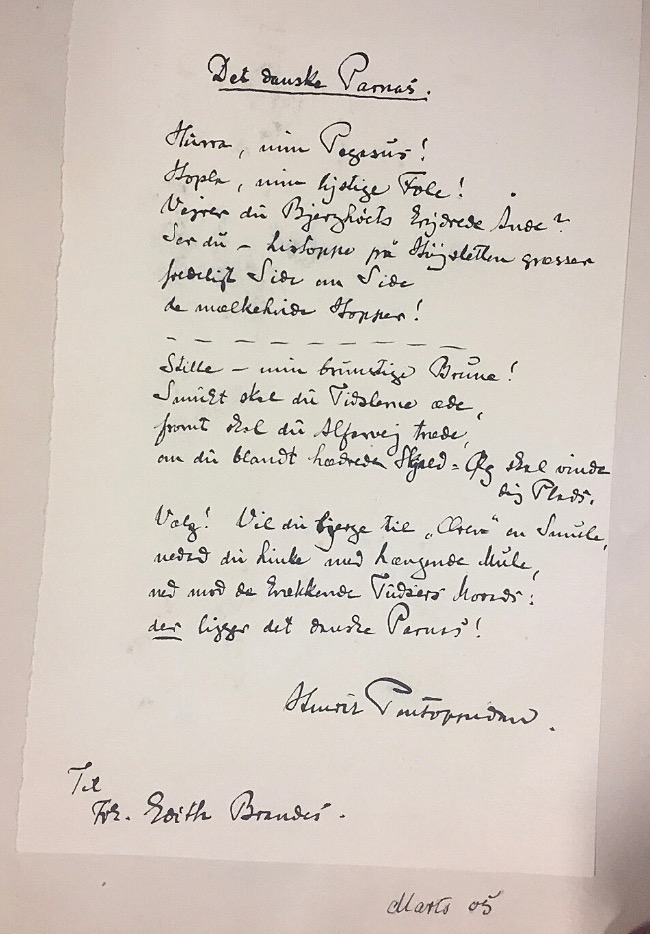 Det danske Parnas.
Hurra, min Pegasus!
Hopla, min lystige Fole!
Vejrer du Bjerghøets krydrede Ånde?
Ser du – histoppe på Højsletten græsser
fredeligt Side om Side
de mælkehvide Hopper!
Stille – min brunstige Brune!
Smukt skal du Tidslerne æde,
fromt skal du Alfarvej træde,
om du blandt hædrede Skjald-Øg skal vinde
din Plads.
Vælg! Vil du bjerge til „Æren" en Smule,
nedad du hinke med hængende Mule,
ned mod de kvækkende Tudsers Morads:
der ligger det danske Parnas!
Henrik Pontoppidan.
Til
Frk. Edith Brandes.
Marts 05